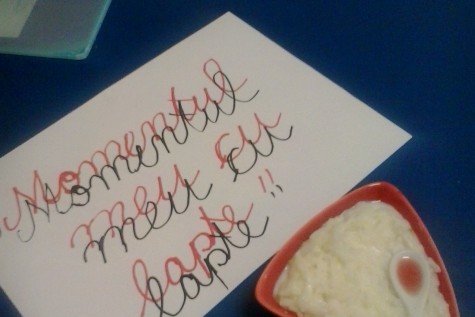 Momentul
meu cu
lapte !!